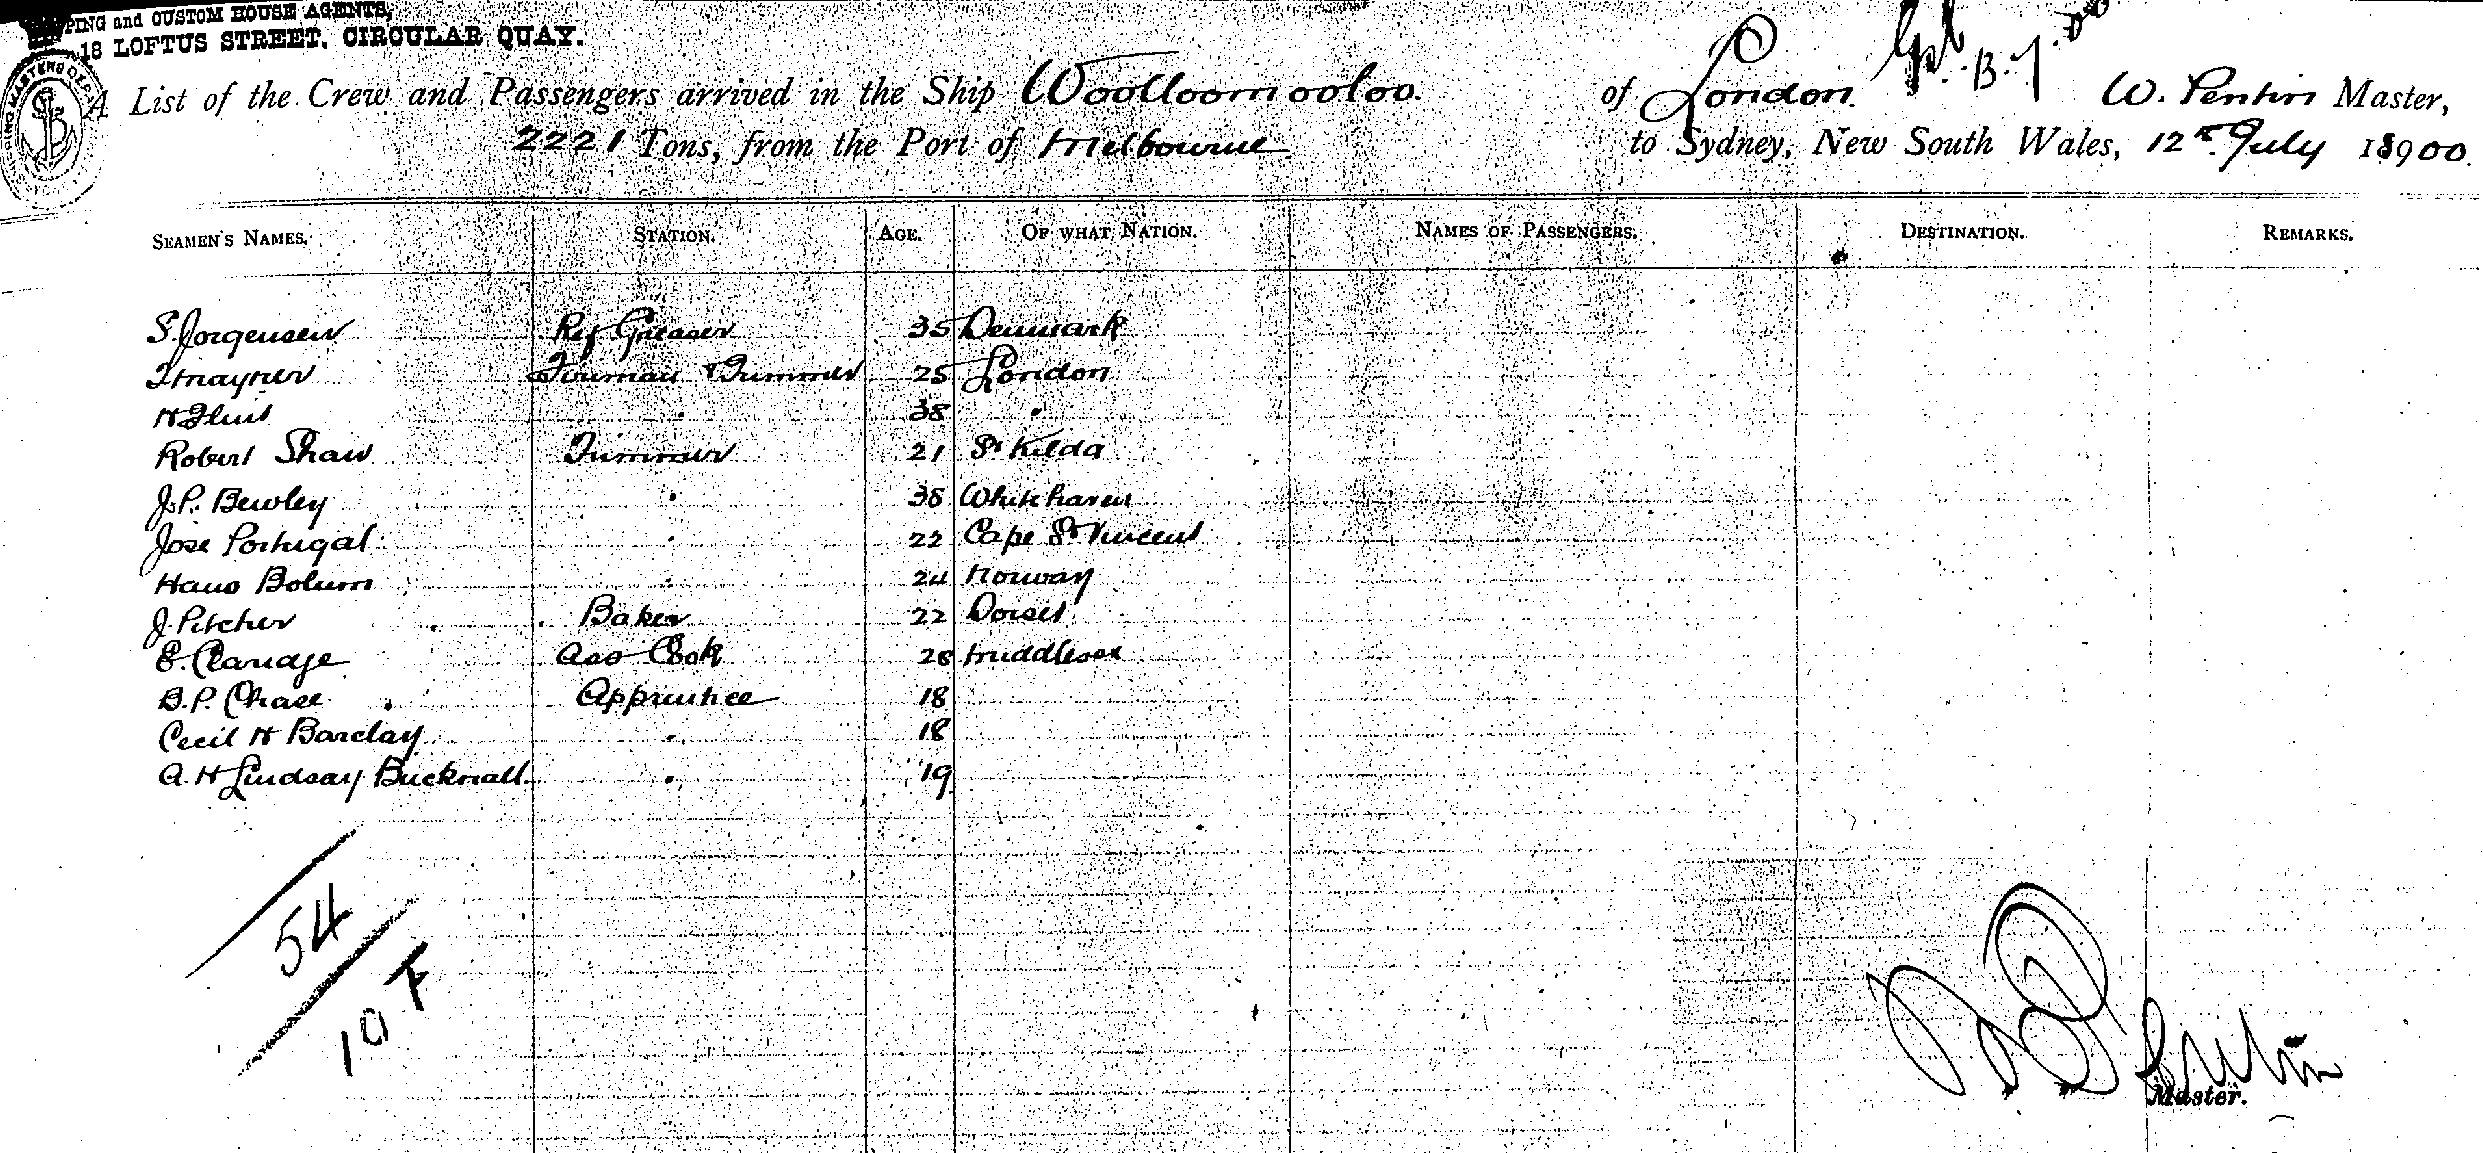 PING and CUSTOM HOUSE AGENTS,
18 LOFTUS STREET, CIRCULAR QUAY.
A List of the Crew and Passengers arrived in the Ship Woolloomooloo. of London. W. Pentin Master,
2221 Tons, from the Port of Melbourne to Sydney, New South Wales, 12th July 18900.
SEAMEN'S NAMES. STATION. AGE. OF WHAT NATION. NAMES OF PASSENGERS. DESTINATION. REMARKS.
S. Jorgensen Ref Greaser 35 Denmark
Fireman & Trimmer 25 London
H Flint " 38 "
Robert Shaw Trimmer 21 St Kilda
J.P. Bewley " 38 Whitehaven
Jose Portugal " 22 Cape St Vincent
Hans Bolum " 24 Norway
J. Pitcher Baker 22 Dorset
E. Claridge Ass Cook 28 Middlesex
B.P. Chase Apprentice 18
Cecil H Barclay " 18
A. H Lindsay Bucknall " 19
54
10 F
Master.